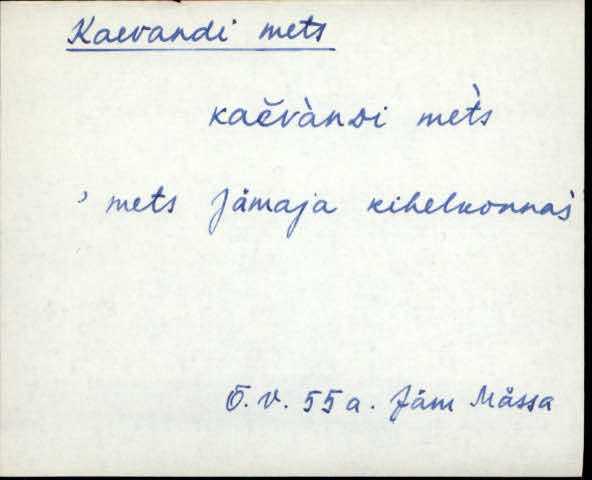 Kaevandi mets
kaĕvànDi mets̀
' mets Jämaja kihelkonnas'
O.V. 55a. Jäm Mässa